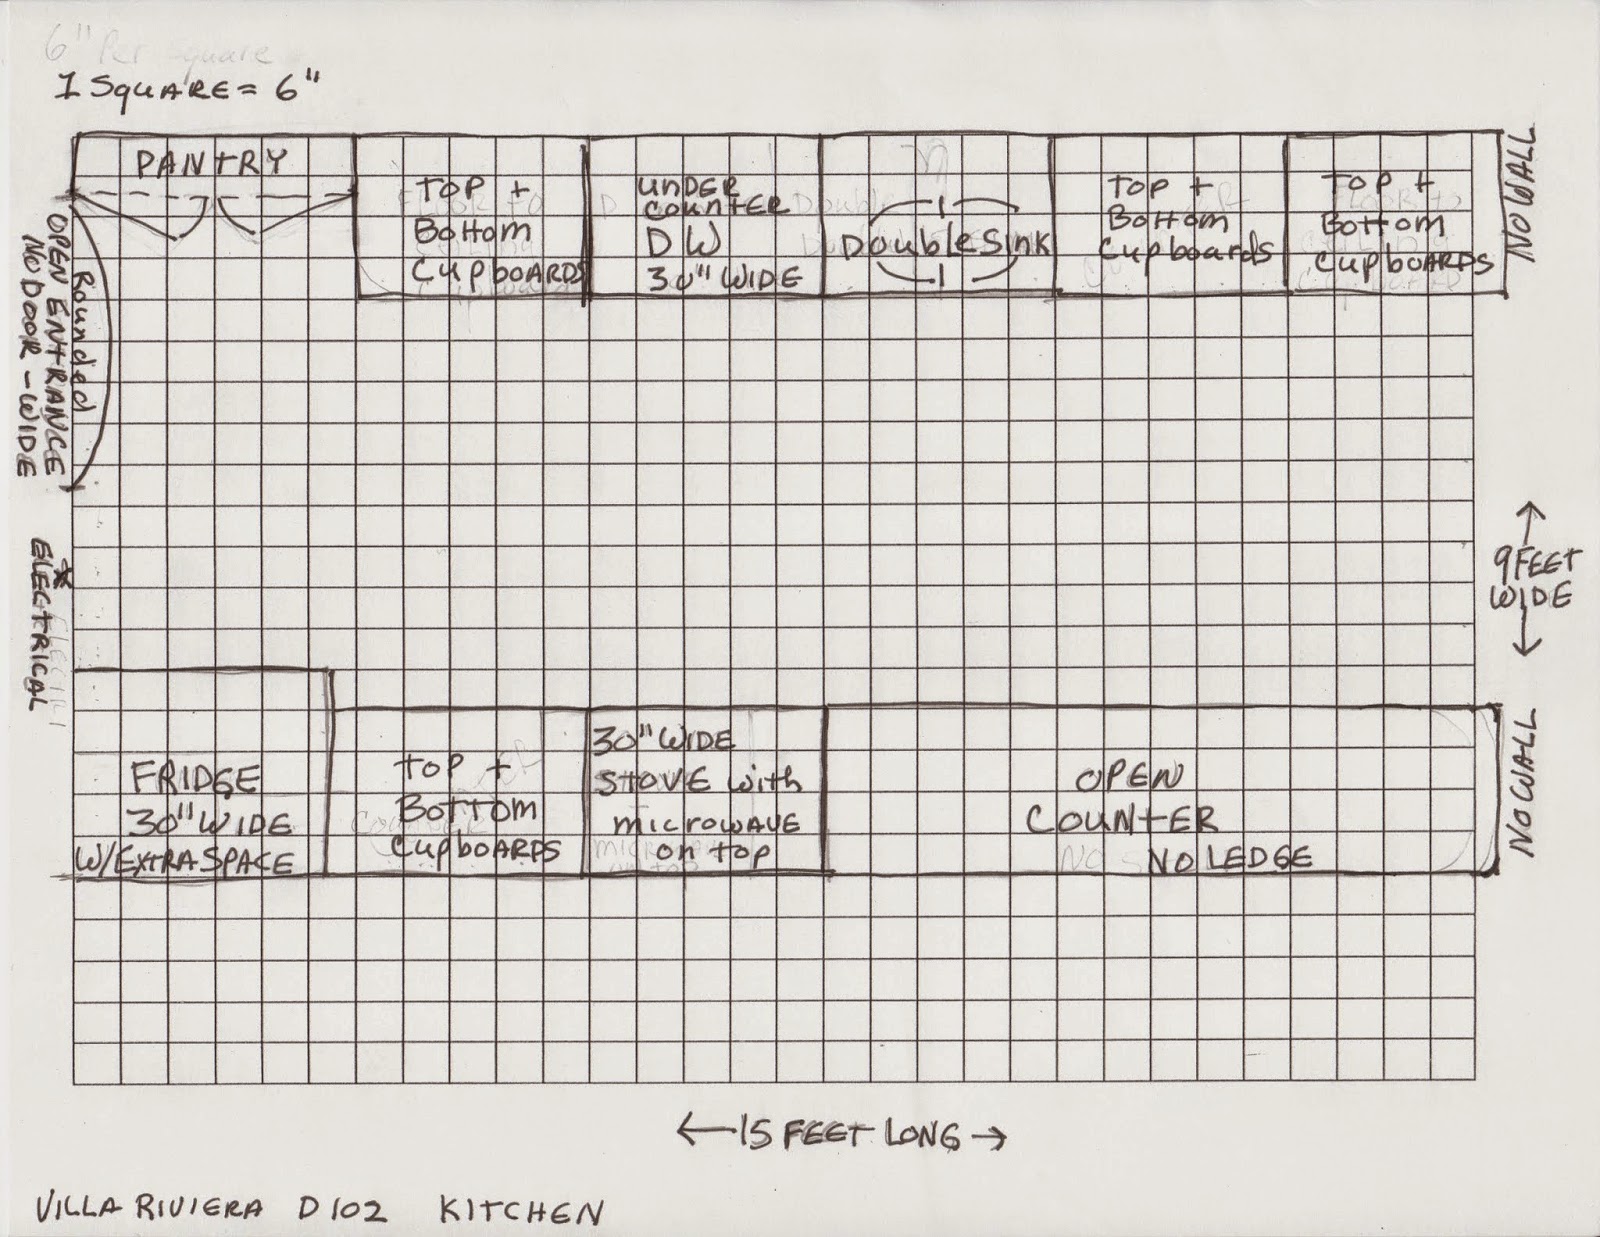 6" Per Square
1 SQUARE = 6"
PANTRY
TOP +
BOTTOM
CUPBOARDS
UNDER
COUNTER
DW
30" WIDE
DOUBLE SINK
TOP +
BOTTOM
CUPBOARDS
TOP +
BOTTOM
CUPBOARDS
NO WALL
ROUNDED
OPEN ENTRANCE
NO DOOR - WIDE
ELECTRICAL
9 FEET
WIDE
FRIDGE
30" WIDE
W/EXTRA SPACE
TOP +
BOTTOM
CUPBOARDS
30" WIDE
STOVE WITH
MICROWAVE
ON TOP
OPEN
COUNTER
NO LEDGE
NO WALL
15 FEET LONG
VILLA RIVIERA D102 KITCHEN